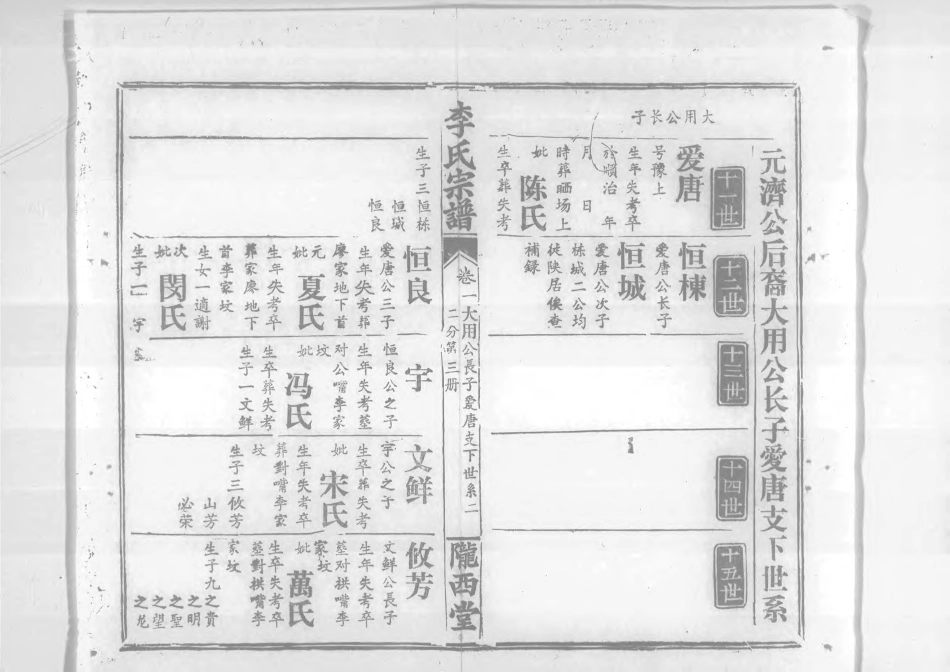 元濟公后裔大用公长子愛唐支下世系
十一世
大用公长子
爱唐
号豫上
生年失考卒
於順治 年
月 日
時葬晒场上
妣
陈氏
生卒葬失考
十二世
恒棟
爱唐公长子
恒城
爱唐公次子
栋城二公均
徒陕居俟查
補録
十三世
十四世
十五世
李氏宗譜
卷一
大用公長子愛唐支下世系二
二分第三册
隴西堂
生子三恒栋
恒城
恒良
恒良
愛唐公三子
生年失考葬
廖家地下首
元
妣
夏氏
生年失考卒
葬家廖地下
首李家坟
生女一適謝
次
妣
闵氏
生子一 宇
宇
恒良公之子
生年失考墓
对公嘴李家
坟
妣
冯氏
生卒葬失考
生子一文鲜
文鲜
宇公之子
生卒葬失考
妣
宋氏
生年失考卒
葬對嘴李家
坟
生子三攸芳
山芳
必荣
攸芳
文鲜公長子
生年失考卒
墓对拱嘴李
家坟
妣
萬氏
生卒失考卒
墓對拱嘴李
家坟
生子九之貴
之明
之聖
之望
之龙